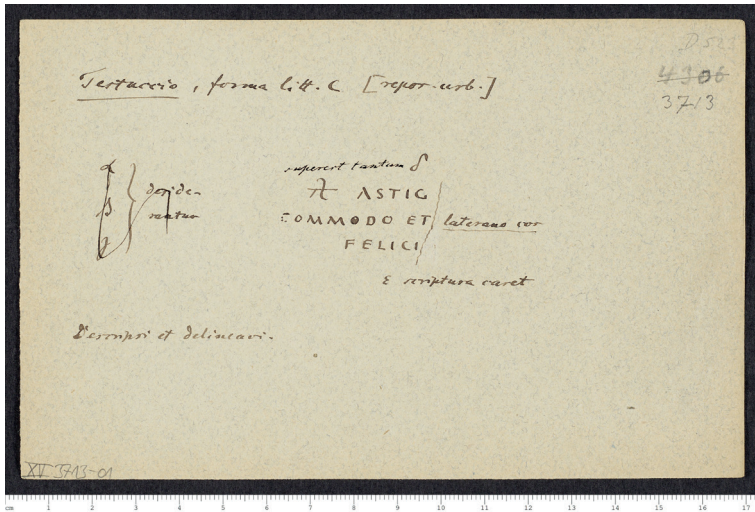 D 523
4306
3713
Testaccio, forma litt. C [repor. urb.]
α
β
γ
deside-
rantur
superest tantum δ
ASTIG
COMMODO ET laterano cos
FELICI
ε scriptura caret
Descripsi et delineavi.
XV 3713-01
cm 1 2 3 4 5 6 7 8 9 10 11 12 13 14 15 16 17